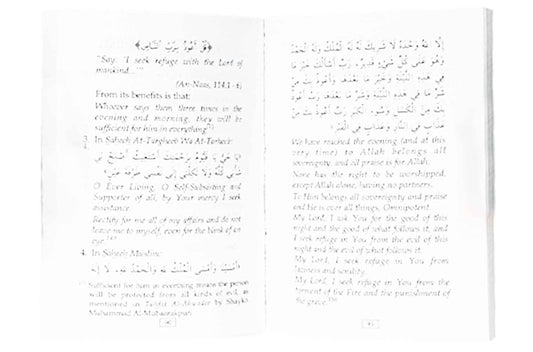 ﴿قُلْ أَعُوذُ بِرَبِّ النَّاسِ﴾
"Say: 'I seek refuge with the Lord of
mankind...'"
(An-Naas, 114:1-6)
From its benefits is that:
Whoever says them three times in the
evening and morning, they will be
sufficient for him in everything
3. In Saheeh At-Targheeb Wa At-Tarheeb:
O Ever Living, O Self-Subsisting and
Supporter of all, by Your mercy I seek
assistance.
Rectify for me all of my affairs and do not
leave me to myself, even for the blink of an
eye.
4. In Saheeh Muslim:
أَمْسَيْنَا وَأَمْسَى الْمُلْكُ لِلَّهِ وَالْحَمْدُ لِلَّهِ، لَا إِلَهَ
Sufficient for him as everything means the person
will be protected from all kinds of evil, as
mentioned in Tuhfat Al-Ahwadee by Shaykh
Muhammad Al-Mubaarakpuri
إِلَّا اللَّهُ وَحْدَهُ لَا شَرِيكَ لَهُ لَهُ الْمُلْكُ وَلَهُ الْحَمْدُ
وَهُوَ عَلَى كُلِّ شَيْءٍ قَدِيرٌ، رَبِّ أَسْأَلُكَ خَيْرَ مَا
فِي هَذِهِ اللَّيْلَةِ وَخَيْرَ مَا بَعْدَهَا وَأَعُوذُ بِكَ مِنْ
شَرِّ مَا فِي هَذِهِ اللَّيْلَةِ وَشَرِّ مَا بَعْدَهَا، رَبِّ أَعُوذُ
بِكَ مِنَ الْكَسَلِ وَسُوءِ الْكِبَرِ، رَبِّ أَعُوذُ بِكَ مِنْ
عَذَابٍ فِي النَّارِ وَعَذَابٍ فِي الْقَبْرِ
We have reached the evening (and at this
very time) to Allah belongs all
sovereignty, and all praise is for Allah.
None has the right to be worshipped,
except Allah alone, having no partners.
To Him belongs all sovereignty and praise
and He is over all things, Omnipotent.
My Lord, I ask You for the good of this
night and the good of what follows it, and
I seek refuge in You from the evil of this
night and the evil of what follows it.
My Lord, I seek refuge in You from
laziness and senility.
My Lord, I seek refuge in You from the
torment of the Fire and the punishment of
the grave.